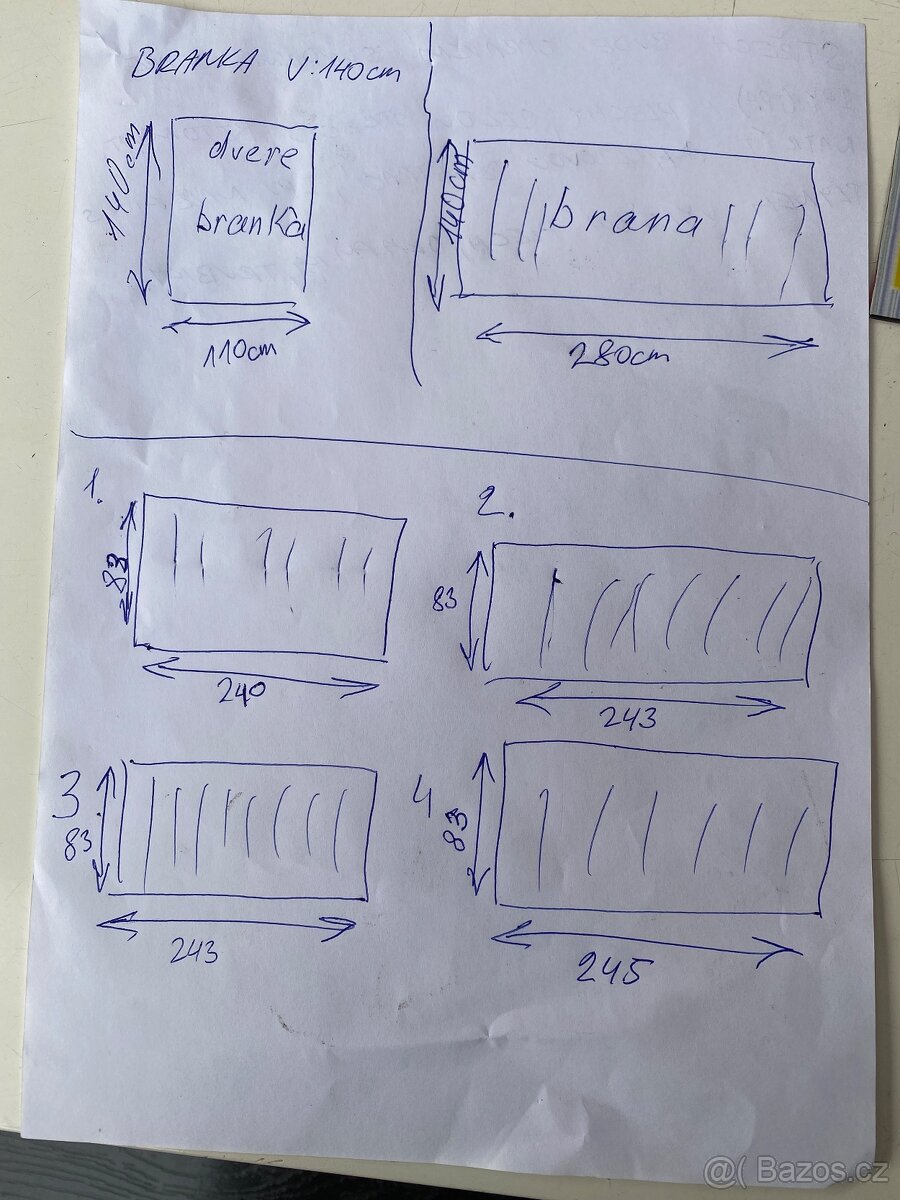 BRANKA V:140cm
140cm
dvere
branka
110cm
140cm
brana
280cm
1.
83
240
2.
83
243
3
83
243
4
83
245
@( Bazos.cz